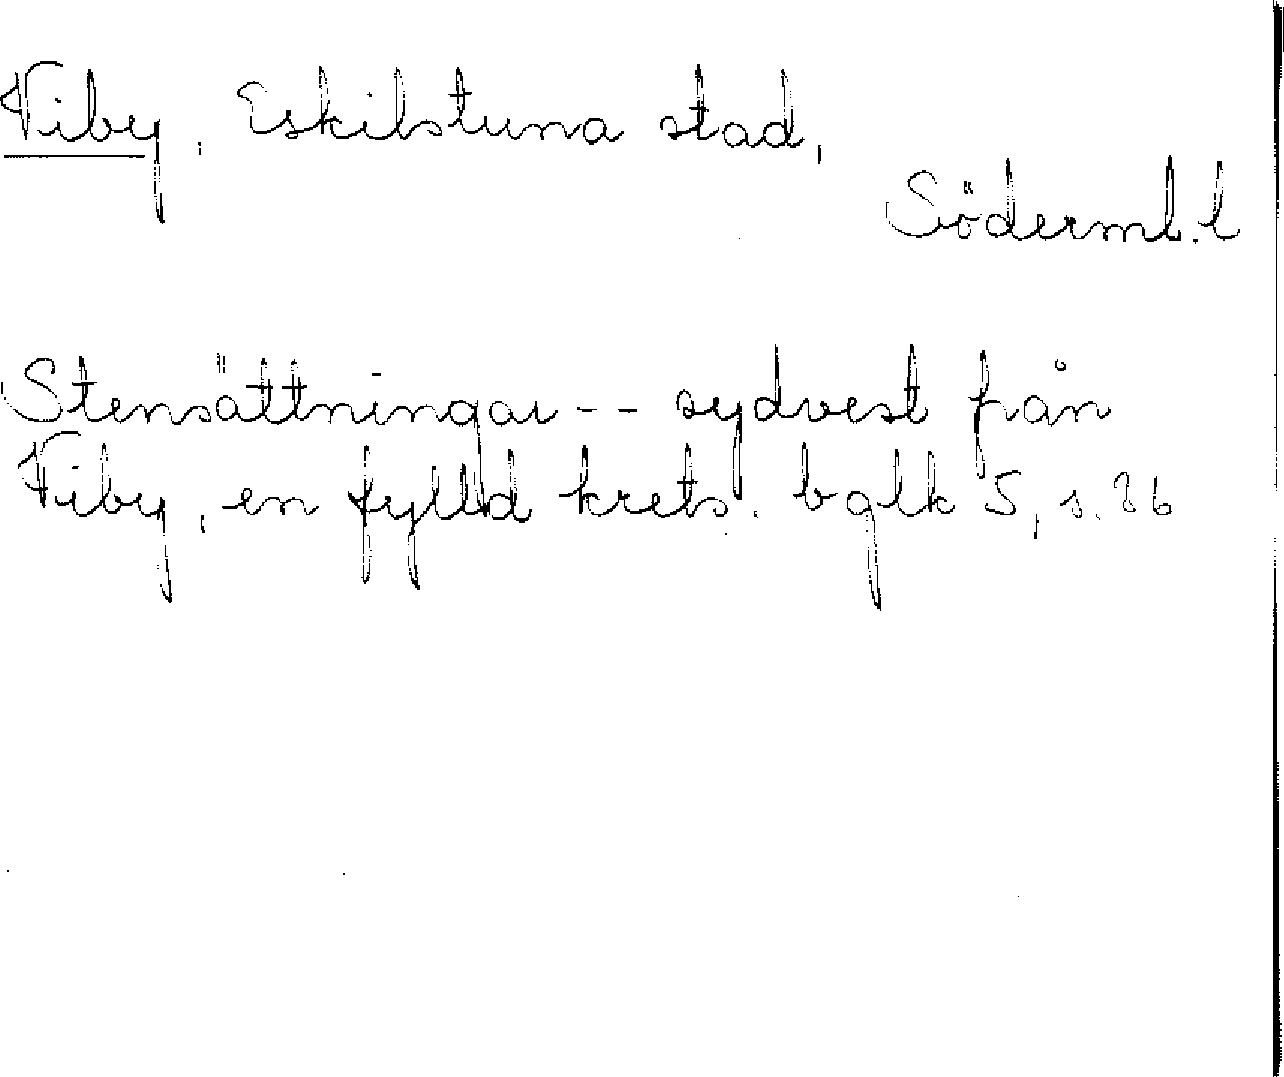 Viby, Eskilstuna stad,
Söderml. l
Stensättningar -- sydvest från
Viby, en fylld krets. bglk 5, s. 26